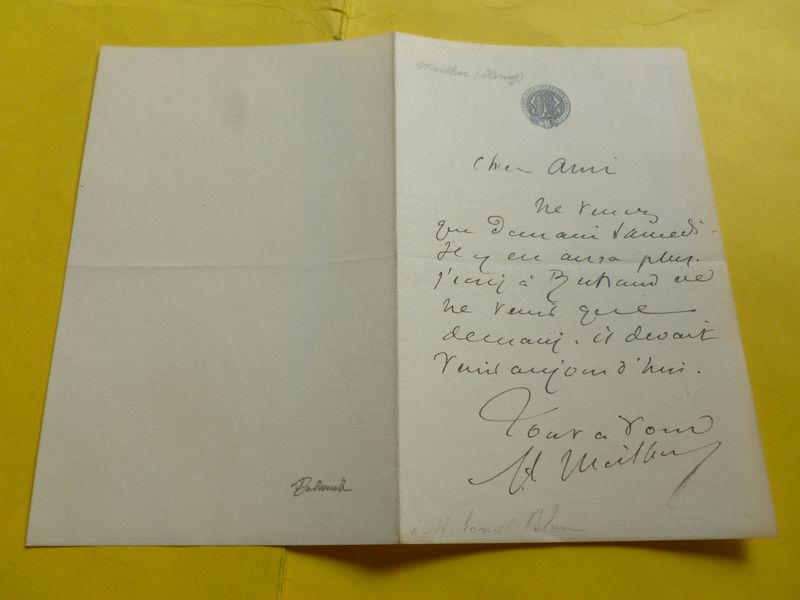 Meilhac (Henry)
Cher Ami
Ne venez
que Demain Samedi.
Il y en aura plus.
J'écris à Bertrand de
ne venir que
demain. il devait
venir aujourd'hui.
Tout à vous
H Meilhac
à M. Ernest Blum